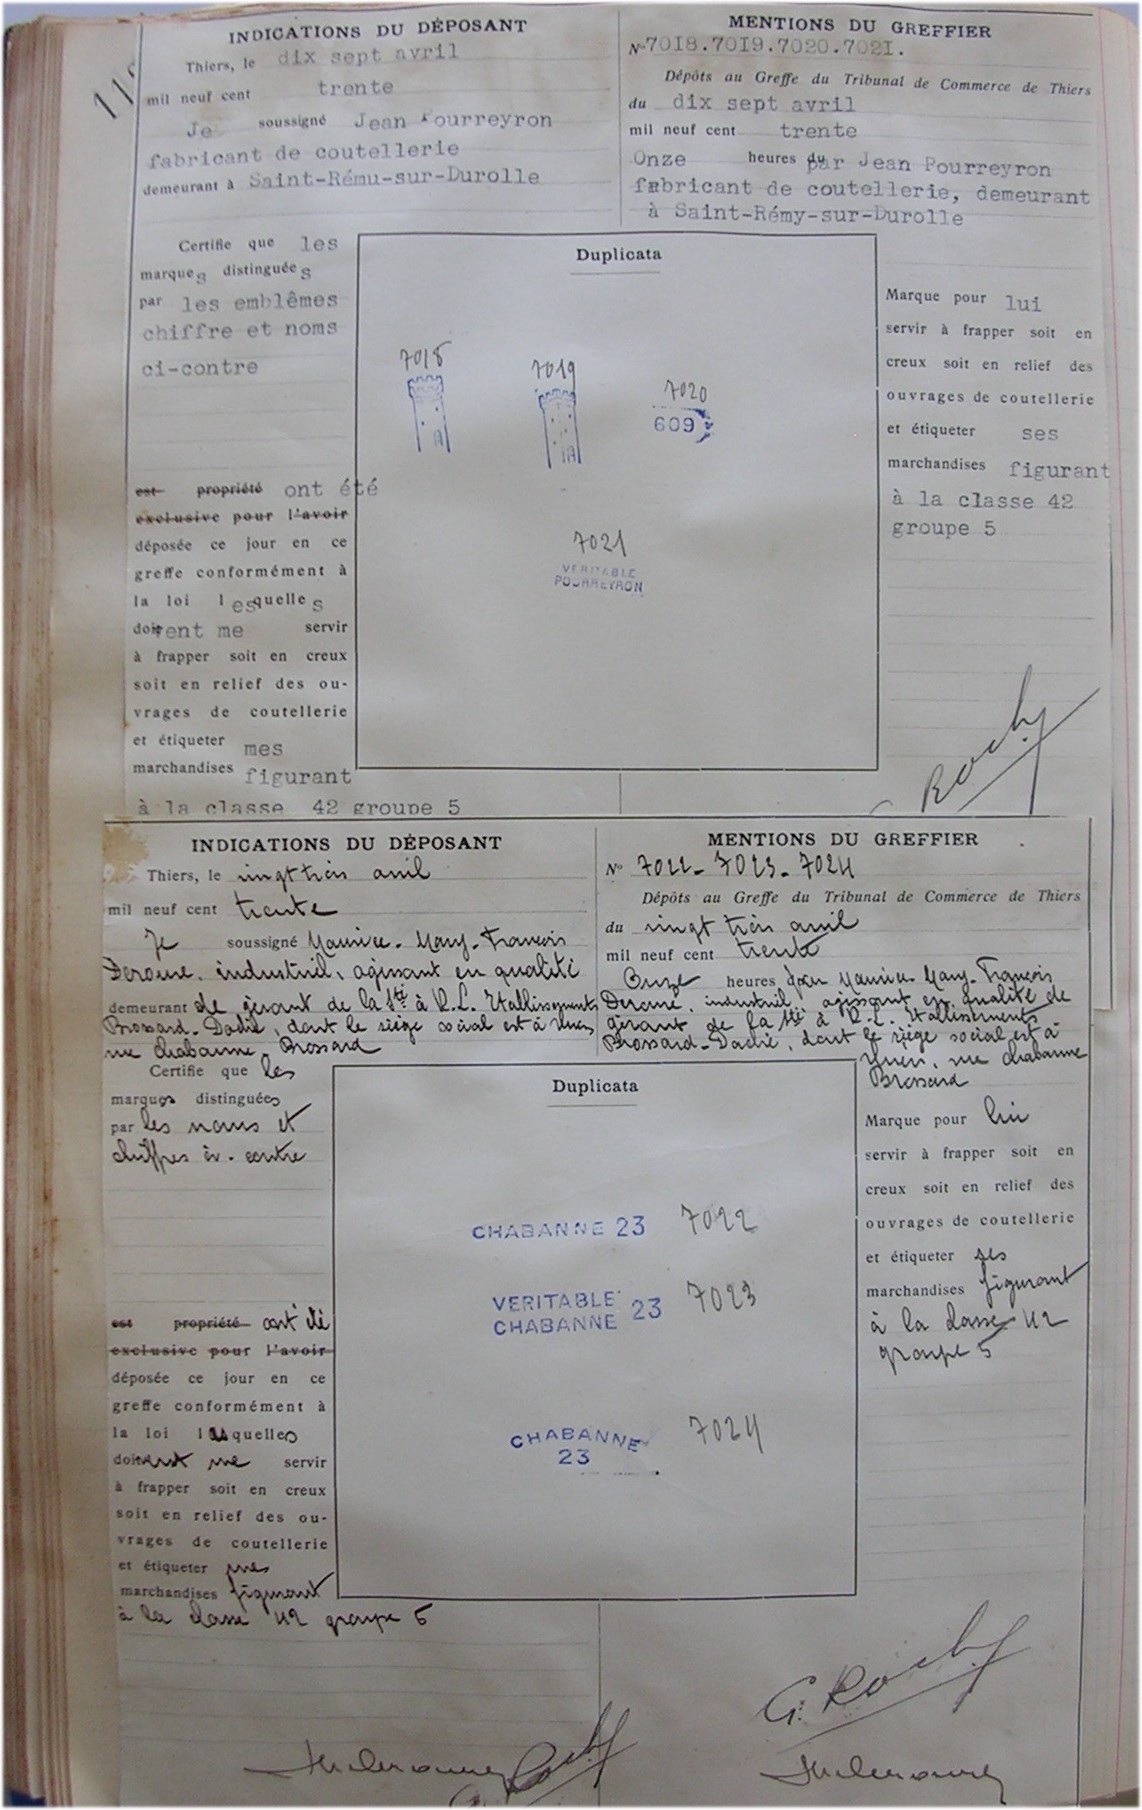 118
INDICATIONS DU DÉPOSANT
Thiers, le dix sept avril
mil neuf cent trente
Je soussigné Jean Pourreyron
fabricant de coutellerie
demeurant à Saint-Rému-sur-Durolle
MENTIONS DU GREFFIER
N° 7018.7019.7020.7021.
Dépôts au Greffe du Tribunal de Commerce de Thiers
du dix sept avril
mil neuf cent trente
Onze heures du par Jean Pourreyron
fabricant de coutellerie, demeurant
à Saint-Rémy-sur-Durolle
Certifie que les
marques distinguées
par les emblêmes
chiffre et noms
ci-contre
est propriété ont été
exclusive pour l'avoir
déposée ce jour en ce
greffe conformément à
la loi lesquelles
doivent me servir
à frapper soit en creux
soit en relief des ou-
vrages de coutellerie
et étiqueter mes
marchandises figurant
à la classe 42 groupe 5
Duplicata
7018
7019
7020
609
7021
VERITABLE
POURREYRON
Marque pour lui
servir à frapper soit en
creux soit en relief des
ouvrages de coutellerie
et étiqueter ses
marchandises figurant
à la classe 42
groupe 5
Roch
INDICATIONS DU DÉPOSANT
Thiers, le vingt trois avril
mil neuf cent trente
Je soussigné Maurice-Mary-François
Derome, industriel, agissant en qualité
demeurant de gérant de la Sté à R.L. Etablissements
Brossard-Dadié, dont le siège social est à Thiers
rue Chabanne-Brossard
MENTIONS DU GREFFIER
N° 7022-7023-7024
Dépôts au Greffe du Tribunal de Commerce de Thiers
du vingt trois avril
mil neuf cent trente
Onze heures par Maurice-Mary-François
Derome, industriel, agissant en qualité de
gérant de la Sté à R.L. Etablissements
Brossard-Dadié, dont le siège social est à
Thiers, rue Chabanne
Brossard
Certifie que les
marques distinguées
par les noms et
chiffres ci-contre
est propriété ont été
exclusive pour l'avoir
déposée ce jour en ce
greffe conformément à
la loi lesquelles
doivent me servir
à frapper soit en creux
soit en relief des ou-
vrages de coutellerie
et étiqueter mes
marchandises figurant
à la classe 42 groupe 5
Duplicata
CHABANNE 23 7022
VERITABLE
CHABANNE 23 7023
CHABANNE
23 7024
Marque pour lui
servir à frapper soit en
creux soit en relief des
ouvrages de coutellerie
et étiqueter ses
marchandises figurant
à la classe 42
groupe 5
G. Roch
G. Roch